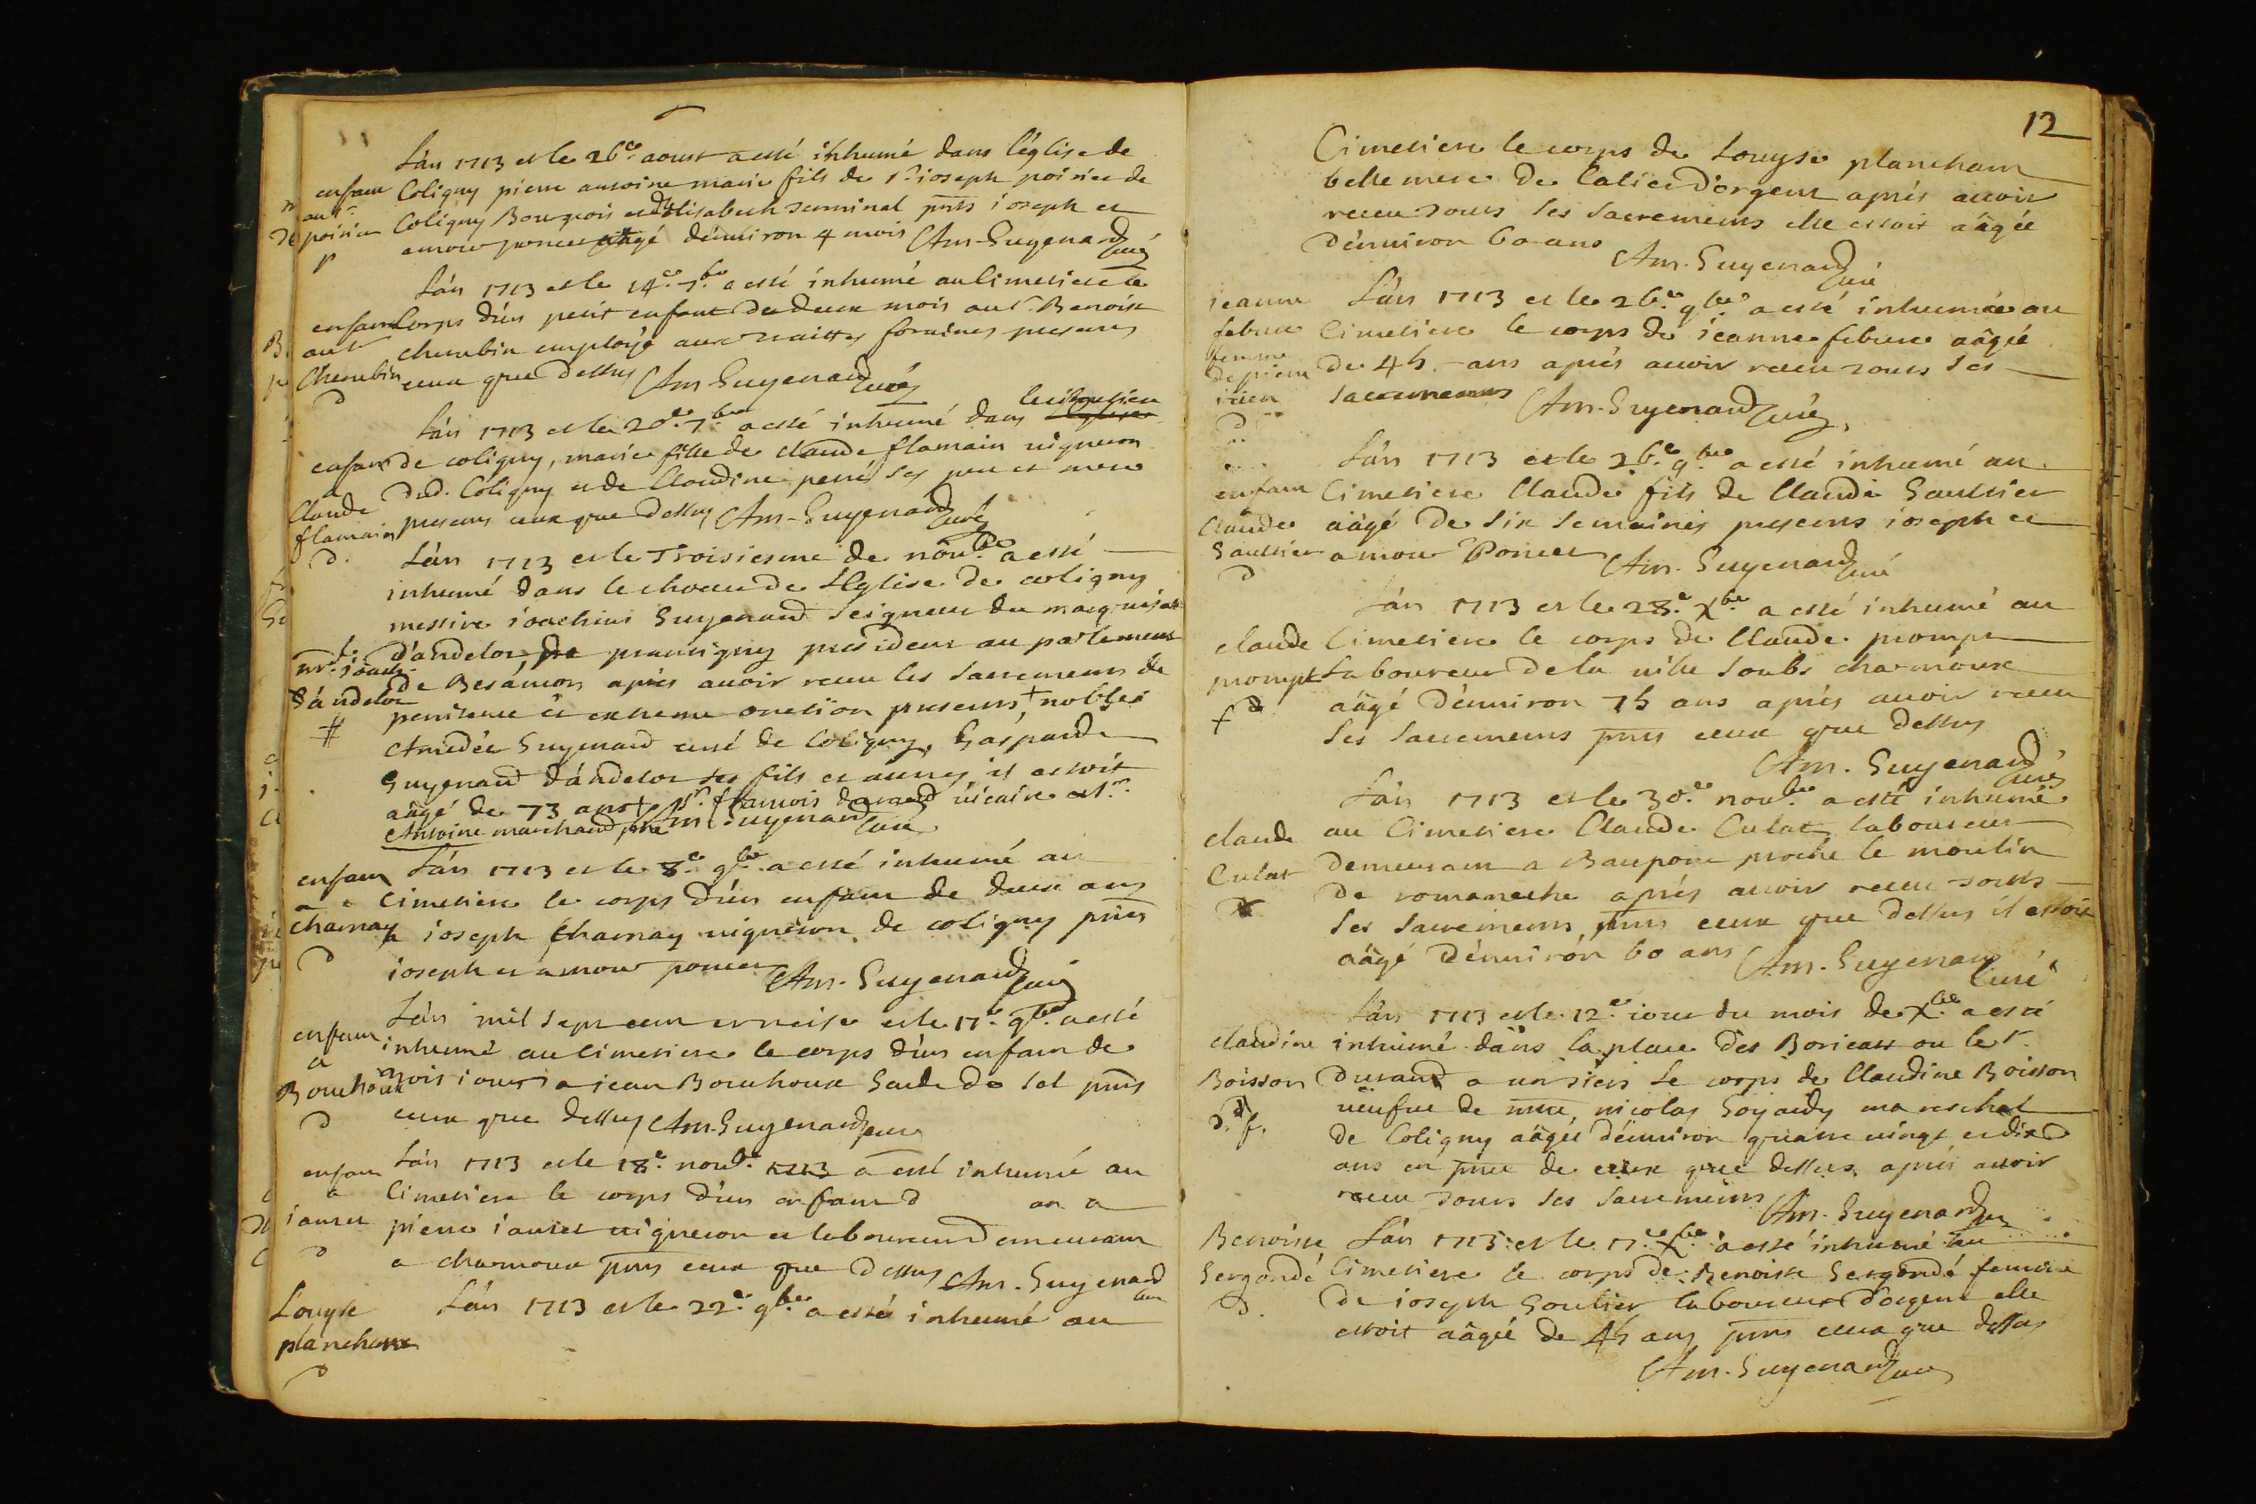 Lán 1713 et le 26e aoust a esté inhumé dans l'église de
enfant Coligny pierre antoine marie fils de Sr ioseph poirier de
au Sr Coligny Bourgois et d'Elisabeth Juminal pnts ioseph et
poirier amour poncet aâgé dénuiron 4 mois Am. Guyenard curé
Lán 1713 et le 14e 7bre a esté inhumé au Cimetiere le
enfant Corps dún petit enfant de deux mois au Sr Benoist
au Sr cherubin employé aux traittes foraines presents
Cherubin ceux que dessus Am Guyenard curé
D
le cimetiere
Lán 1713 et le 20e 7bre a esté inhumé dans
enfant de coligny, marie fille de claude flamain uigneron
a dud. Coligny et de Claudine perré ses pere et mere
Claude presens ceux que dessus Am. Guyenard curé
flamain
D. Lán 1713 et le Troisiesme de noubre a esté
inhumé dans le choeur de l'Eglise de coligny
messire ioachim Guyenard Seigneur du marquisat
d'andelot, pressigny president au parlement
mre ioach. de Besancon apres auoir receu les sacremens de
d'ándelot penitence et extreme onction presens + nobles
# Amedée Guyenard curé de Coligny, Gasparde
Guyenard d'ándelot ses fils et autres, il estoit
aâgé de 73 ans + Sr francois durand uicaire et Sr
Antoine marchand ptre Am Guyenard curé
enfant Lán 1713 et le 8e 9bre a esté inhumé au
a Cimetiere le corps dún enfant de deux ans
Charnay a ioseph Charnay uigneron de coligny pnts
D ioseph et amour poncet Am. Guyenard curé
enfant Lán mil sept cent et treise et le 17e 9bre a esté
a inhumé au Cimetiere le corps dún enfant de
Bouhoux trois iours a jean Bouhoux Garde de sel pnts
D ceux que dessus Am. Guyenard curé
enfant Lán 1713 et le 18e noubre 1713 a esté inhumé au
a Cimetiere le corps dún enfant d an a
iantet pierre iantet uigneron et laboureur demeurant
D a charmoux pnts ceux que dessus Am. Guyenard curé
Louyse Lán 1713 et le 22e 9bre a esté inhumé au
planchant
D
12
Cimetiere le corps de Louyse planchant
belle mere de Calice d'orgent aprés auoir
receu tous ses sacremens elle estoit aâgée
dénuiron 60 ans Am. Guyenard curé
ieanne Lán 1713 et le 26e 9bre a esté inhumée au
febure Cimetiere le corps de ieanne febure aâgée
femme
de pierre de 45 - ans aprés auoir receu tous ses
sacremens Am. Guyenard curé
D
Lán 1713 et le 26e 9bre a esté inhumé au
enfant Cimetiere Claude fils de Claude Gaultier
a
Claude aâgé de six semaines presens ioseph et
Gaultier amour Poncet Am. Guyenard curé
D
Lán 1713 et le 28e Xbre a esté inhumé au
claude Cimetiere le corps de Claude prompt
prompt Laboureur de la uille soubs charmoux
f D aâgé dénuiron 75 ans aprés auoir receu
ses sacremens pnts ceux que dessus
Am. Guyenard curé
Lán 1713 et le 30e noubre a esté inhumé
claude au Cimetiere Claude Culat laboureur
Culat demeurant a Baupont proche le moulin
de romaneche aprés auoir receu touts
ses sacremens, pnts ceux que dessus il estoit
aâgé dénuirón 60 ans Am. Guyenard Curé
Lán 1713 et le 12e iour du mois de Xbre a esté
claudine inhumé dans la place des Boricats ou le Sr
Boisson Durand a un tiers le corps de Claudine Boisson
D. f. uéufue de nicolas Goyardy mareschal
de Coligny aâgée dénuiron quatre uingt et dix
ans en pnce de ceux que dessus aprés auoir
receu tous ses sacremens Am. Guyenard
Benoiste Lán 1713 et le 17e Xbre a esté inhumé au
Gergondé Cimetiere le corps de Benoiste Gergondé femme
D. de ioseph Goulier laboureur d'orgent elle
estoit aâgée de 45 ans pnts ceux que dessus
Am. Guyenard curé